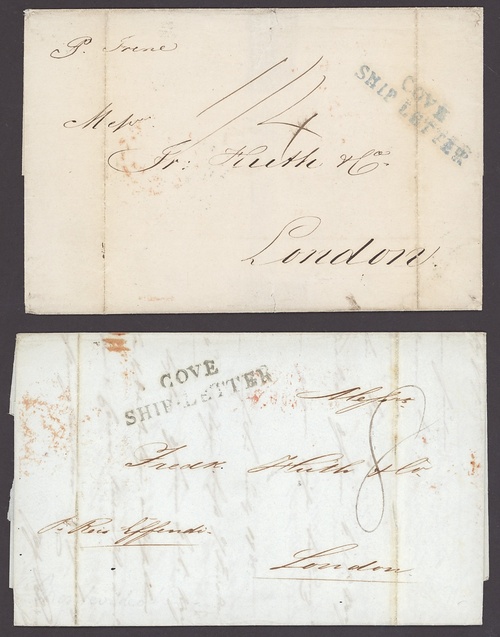 P. Irene
COVE
SHIP LETTER
1/4
Messrs.
Fr: Huth & Co.
London.
COVE
SHIP LETTER
Messrs.
8
Fredk. Huth & Co
Pr. Reis Effendi.
London.